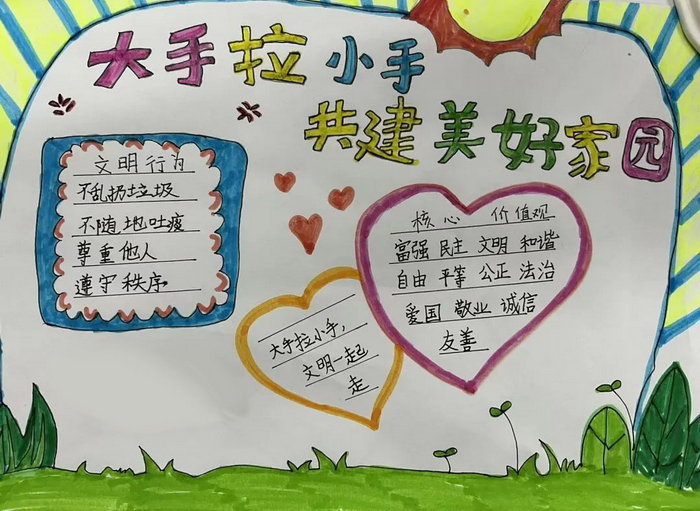 大手拉小手
共建美好家园
文明行为
不乱扔垃圾
不随地吐痰
尊重他人
遵守秩序.
核心 价值观
富强 民主 文明 和谐
自由 平等 公正 法治
爱国 敬业 诚信
友善
大手拉小手,
文明一起
走